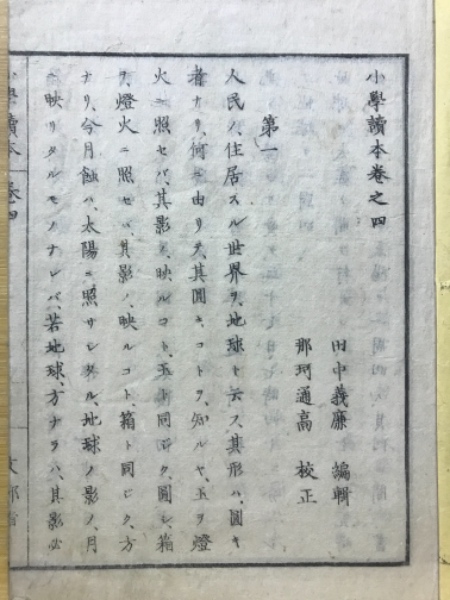 小學讀本卷之四
田中義廉 編輯
那珂通高 校正
第一
人民ノ、住居スル世界ヲ、地球ト云フ、其形ハ、圓キ
者ナリ、何ニ由リテ、其圓キコトヲ、知ルヤ、玉ヲ燈
火ニ照セバ、其影ノ、映ルコト、玉ト同ジク、圓シ、箱
ヲ、燈火ニ照セバ、其影ノ、映ルコト、箱ト同ジク、方
ナリ、今月蝕ハ、太陽ニ照サレタル、地球ノ影ノ、月
ニ映リタルモノナレバ、若地球、方ナラバ、其影必
小學讀本 卷四
文部省